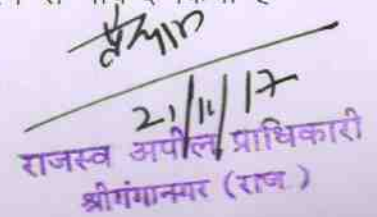 21/11/17
राजस्व अपील प्राधिकारी
श्रीगंगानगर (राज.)